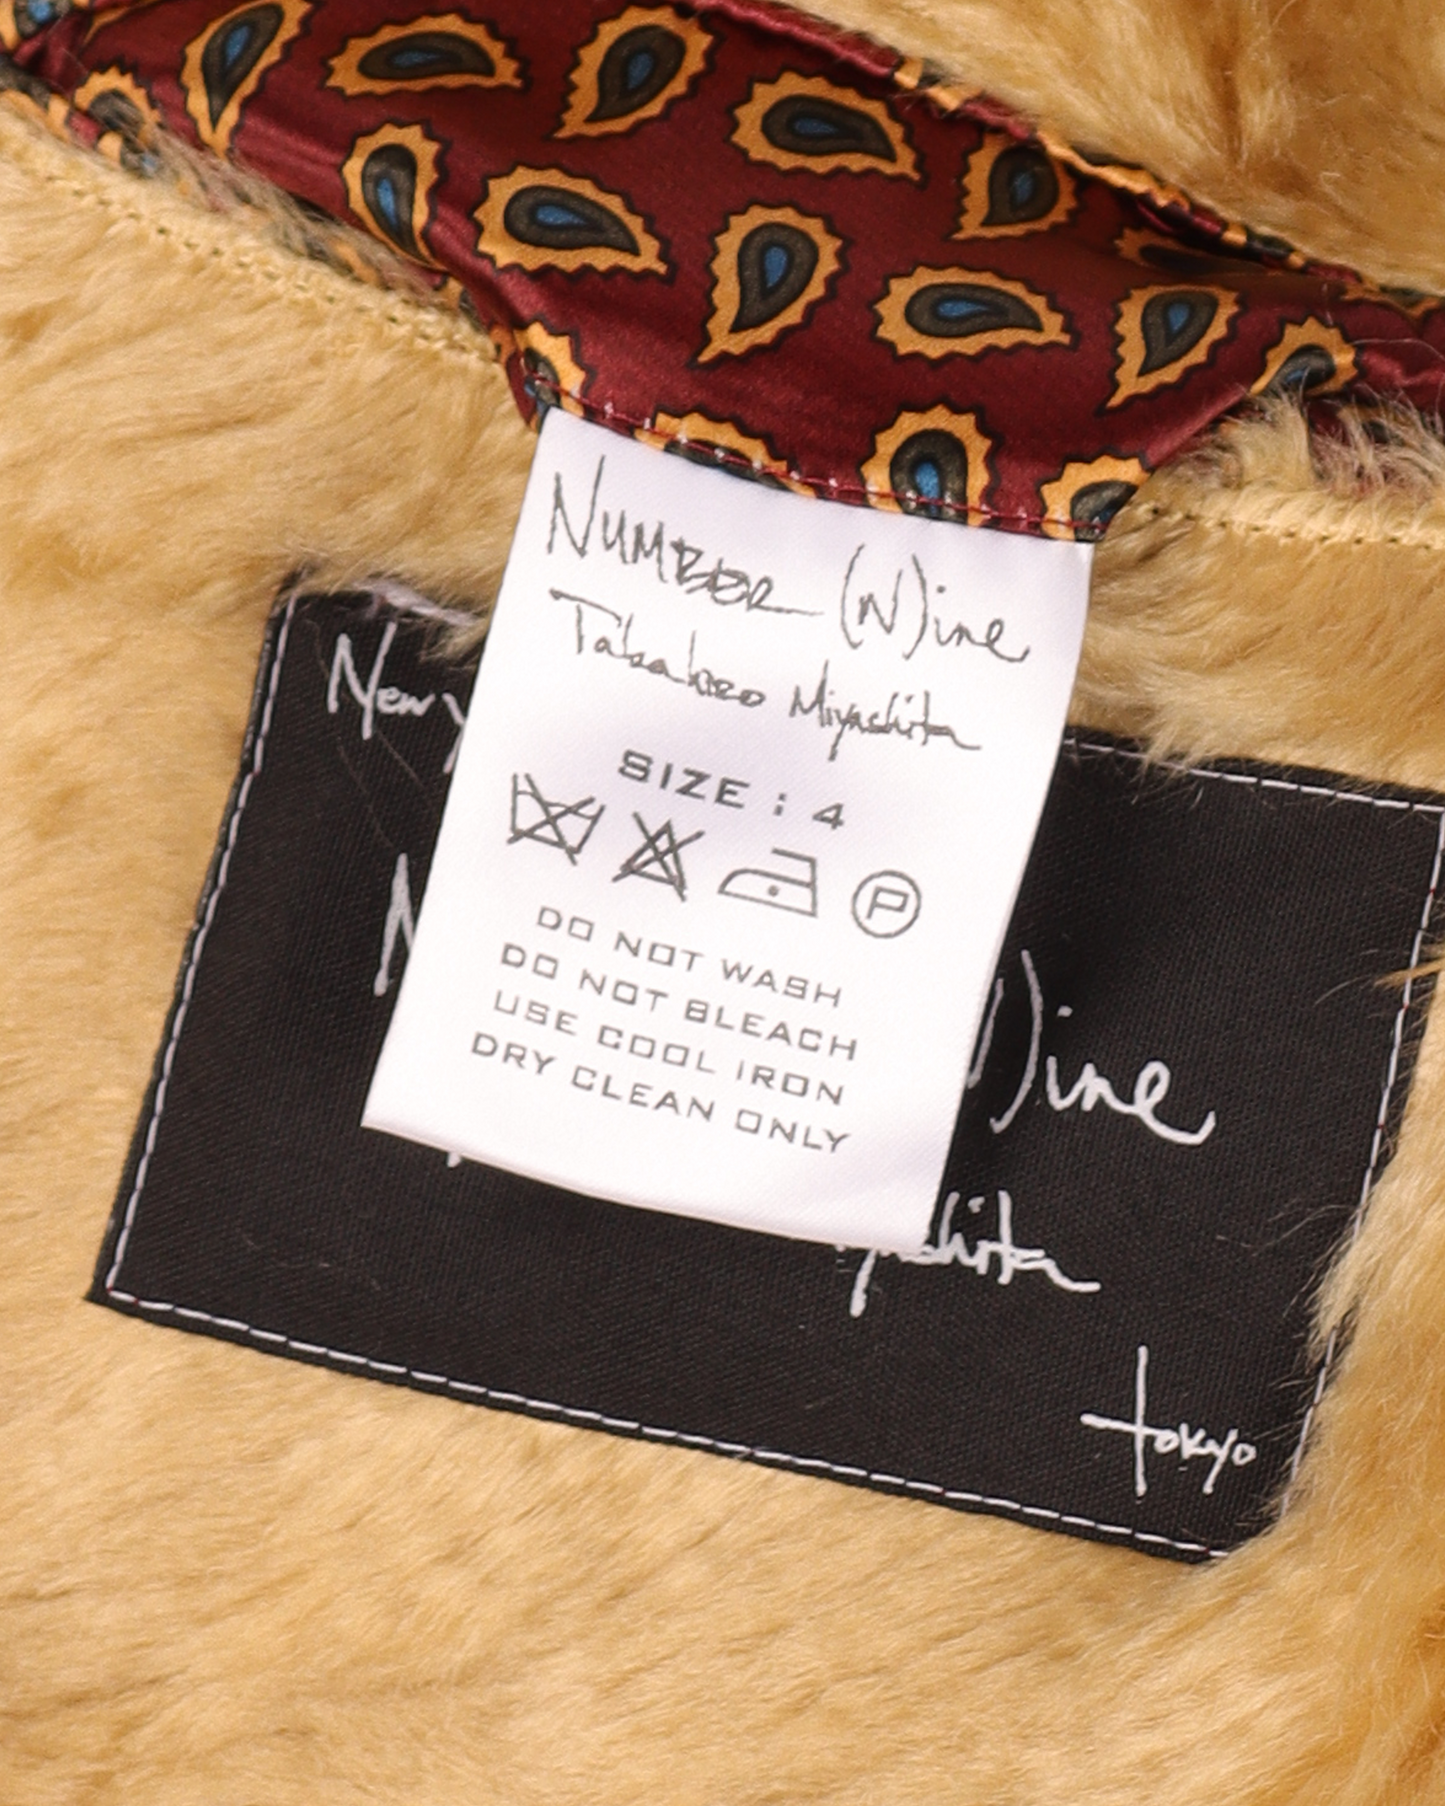 NUMBER (N)ine
Takahiro Miyashita
SIZE : 4
P
DO NOT WASH
DO NOT BLEACH
USE COOL IRON
DRY CLEAN ONLY
New Y
N )ine
yashita
tokyo